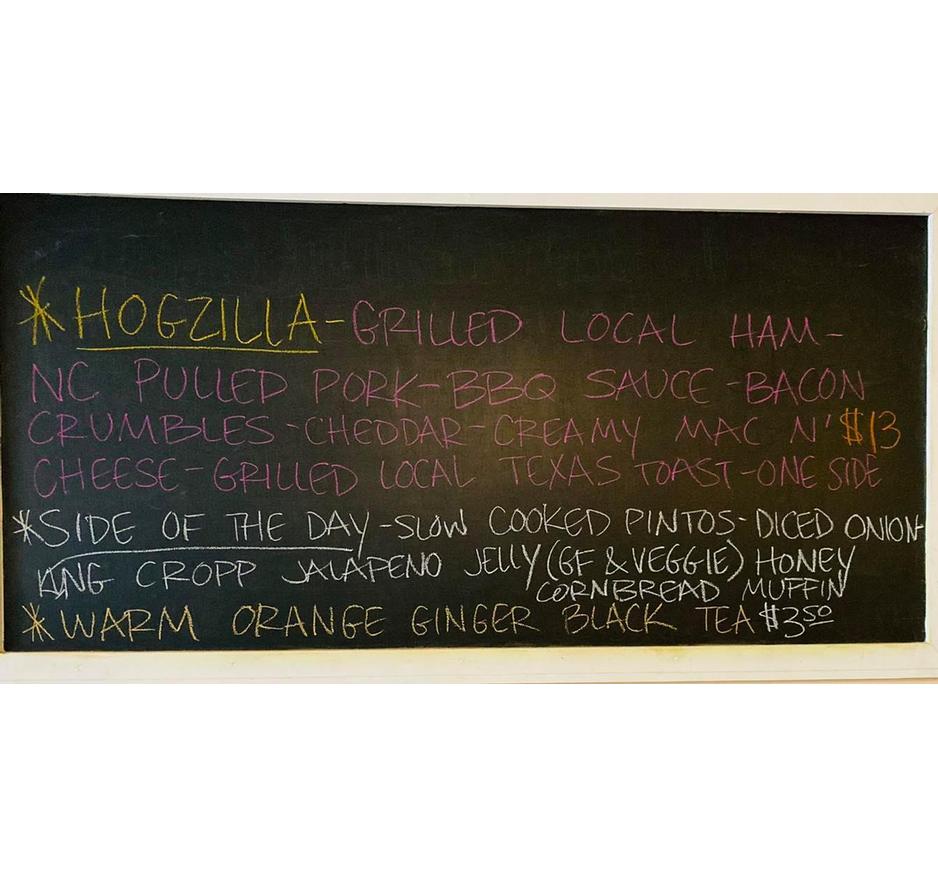 * HOGZILLA-GRILLED LOCAL HAM-
NC PULLED PORK-BBQ SAUCE-BACON
CRUMBLES-CHEDDAR-CREAMY MAC N' $13
CHEESE-GRILLED LOCAL TEXAS TOAST-ONE SIDE
*SIDE OF THE DAY-SLOW COOKED PINTOS-DICED ONION-
KING CROPP JALAPENO JELLY (GF & VEGGIE) HONEY
CORNBREAD MUFFIN
* WARM ORANGE GINGER BLACK TEA $3.50